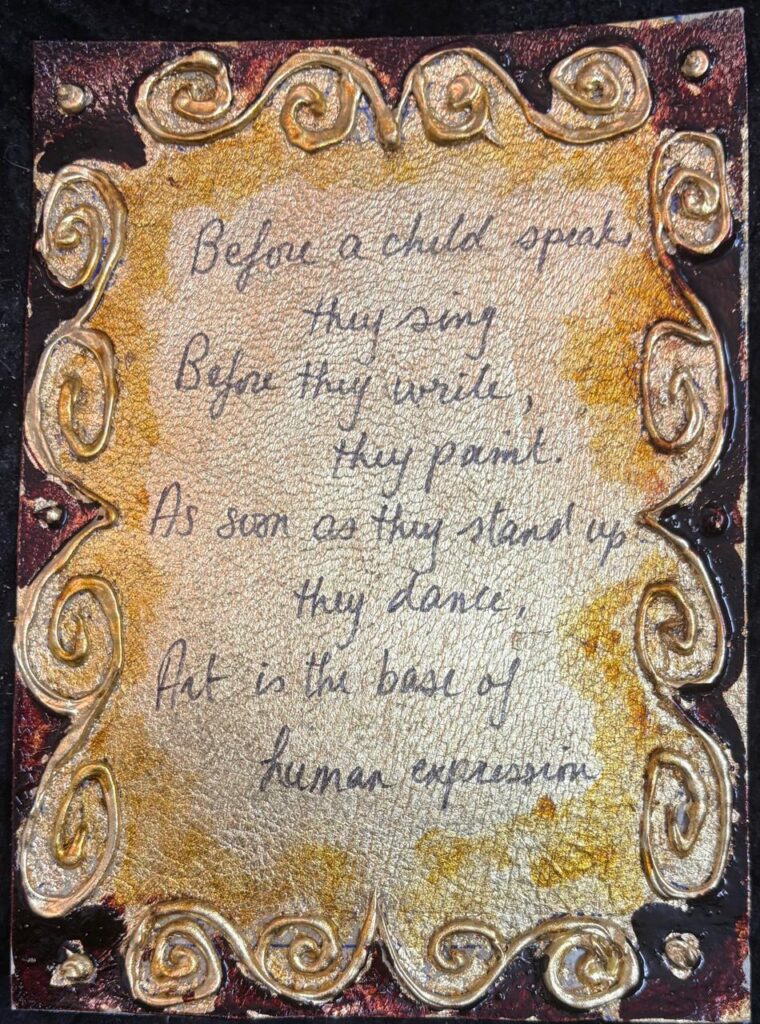 Before a child speaks
they sing
Before they write,
they paint.
As soon as they stand up
they dance,
Art is the base of
human expression